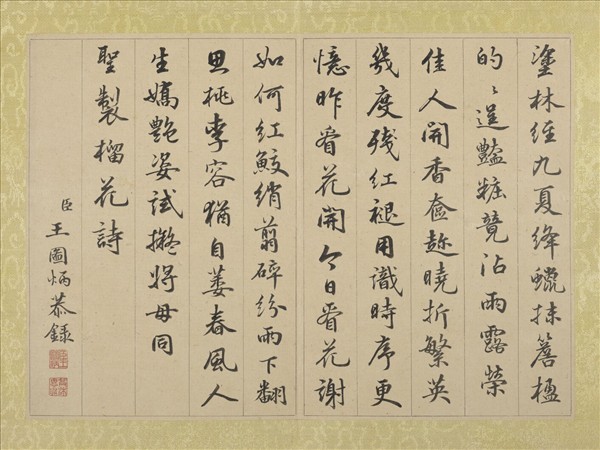 塗林經九夏絳蠟抹簷楹
的〻逞豔糚竟沾雨露榮
佳人開香奩趂曉折繁英
幾度残紅褪用識時序更
憶昨看花開今日看花謝
如何紅鮫綃翦碎紛雨下翻
思桃李容猶自萎春風人
生嬌艷姿試擬將毋同
聖製榴花詩
臣王圖炳恭録